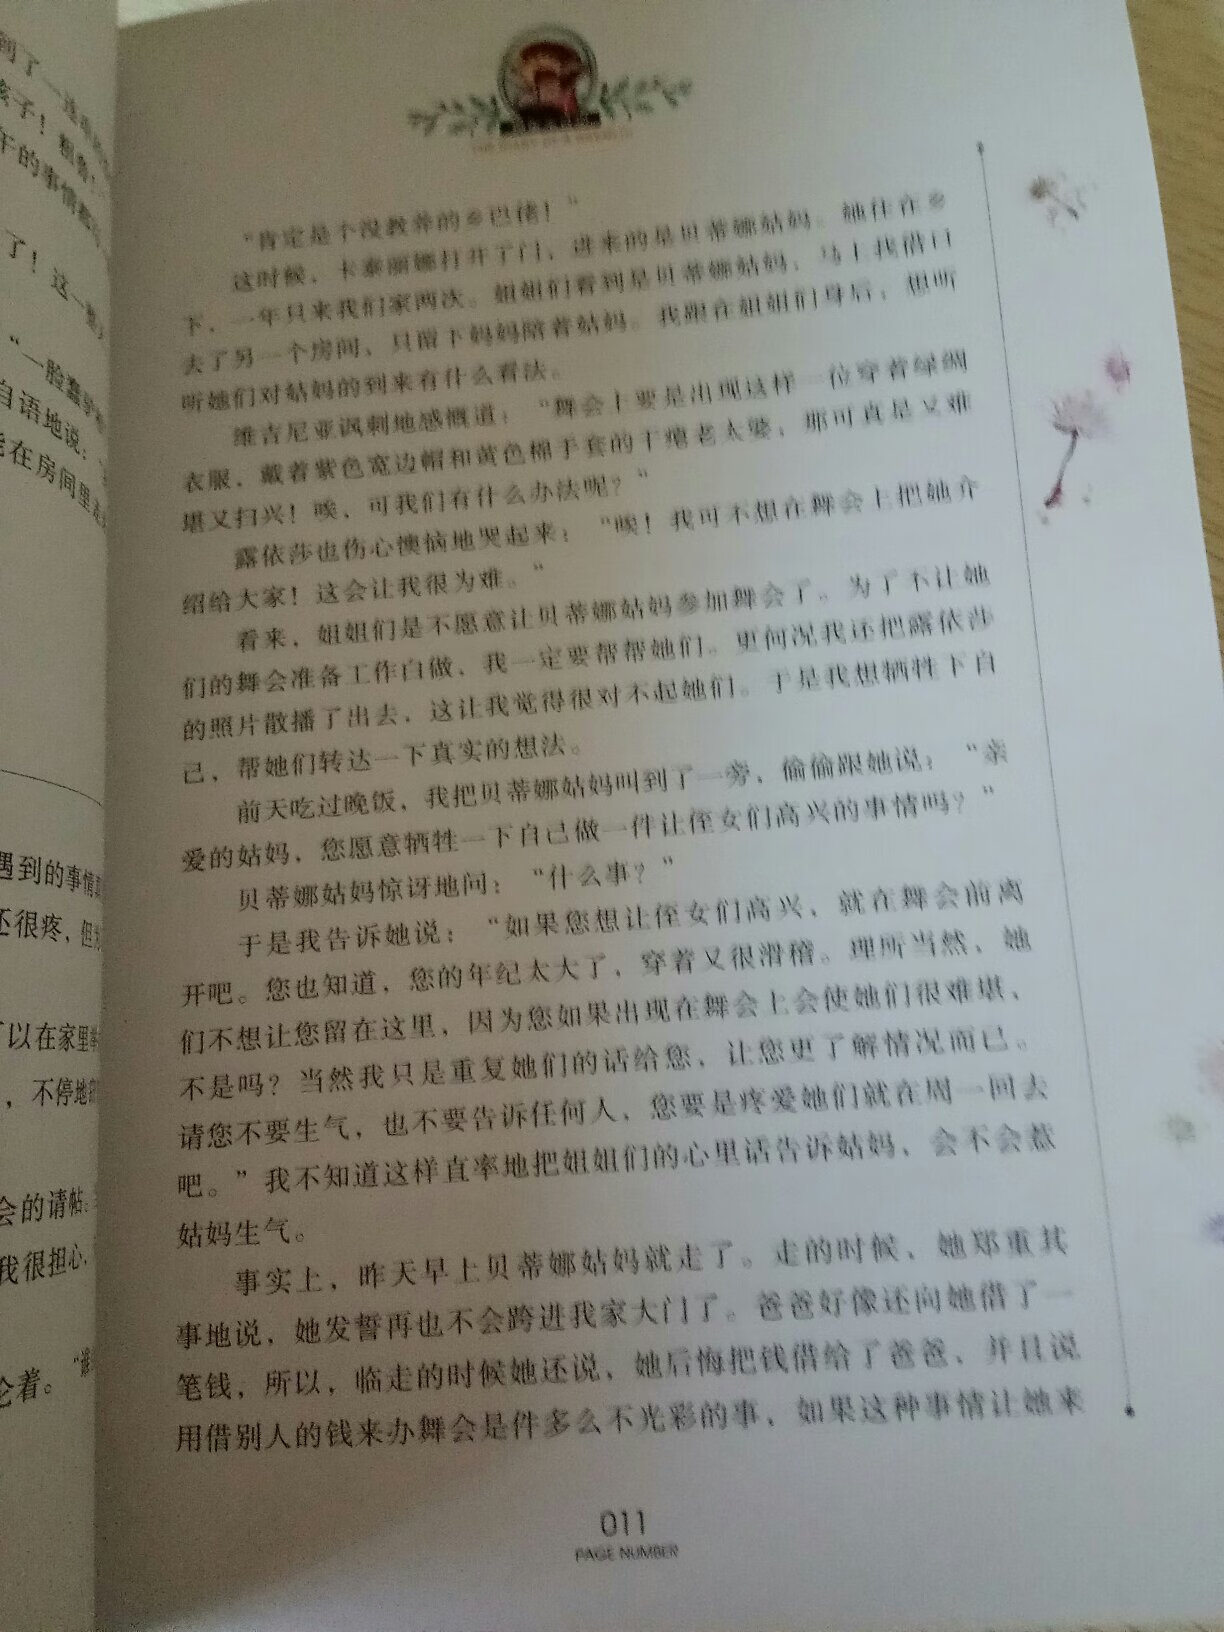 到了一连串的
孩子！粗鲁！
午的事情都
了！这一
“一脸蠢驴
自语地说：
能在房间里走
遇到的事情真
还很疼，但
可以在家里举
，不停地
会的请帖。
我很担心，
论着。“谁
“肯定是个没教养的乡巴佬！”
这时候，卡泰丽娜打开了门，进来的是贝蒂娜姑妈。她住在乡
下，一年只来我们家两次。姐姐们看到是贝蒂娜姑妈，马上找借口
去了另一个房间，只留下妈妈陪着姑妈。我跟在姐姐们身后，想听
听她们对姑妈的到来有什么看法。
维吉尼亚讽刺地感慨道：“舞会上要是出现这样一位穿着绿绸
衣服，戴着紫色宽边帽和黄色棉手套的干瘪老太婆，那可真是又难
堪又扫兴！唉，可我们有什么办法呢？”
露依莎也伤心懊恼地哭起来：“唉！我可不想在舞会上把她介
绍给大家！这会让我很为难。”
看来，姐姐们是不愿意让贝蒂娜姑妈参加舞会了。为了不让她
们的舞会准备工作白做，我一定要帮帮她们。更何况我还把露依莎
的照片散播了出去，这让我觉得很对不起她们。于是我想牺牲下自
己，帮她们转达一下真实的想法。
前天吃过晚饭，我把贝蒂娜姑妈叫到了一旁，偷偷跟她说：“亲
爱的姑妈，您愿意牺牲一下自己做一件让侄女们高兴的事情吗？”
贝蒂娜姑妈惊讶地问：“什么事？”
于是我告诉她说：“如果您想让侄女们高兴，就在舞会前离
开吧。您也知道，您的年纪太大了，穿着又很滑稽。理所当然，她
们不想让您留在这里，因为您如果出现在舞会上会使她们很难堪，
不是吗？当然我只是重复她们的话给您，让您更了解情况而已。
请您不要生气，也不要告诉任何人，您要是疼爱她们就在周一回去
吧。”我不知道这样直率地把姐姐们的心里话告诉姑妈，会不会惹
姑妈生气。
事实上，昨天早上贝蒂娜姑妈就走了。走的时候，她郑重其
事地说，她发誓再也不会跨进我家大门了。爸爸好像还向她借了一
笔钱，所以，临走的时候她还说，她后悔把钱借给了爸爸，并且说
用借别人的钱来办舞会是件多么不光彩的事，如果这种事情让她来
011
PAGE NUMBER